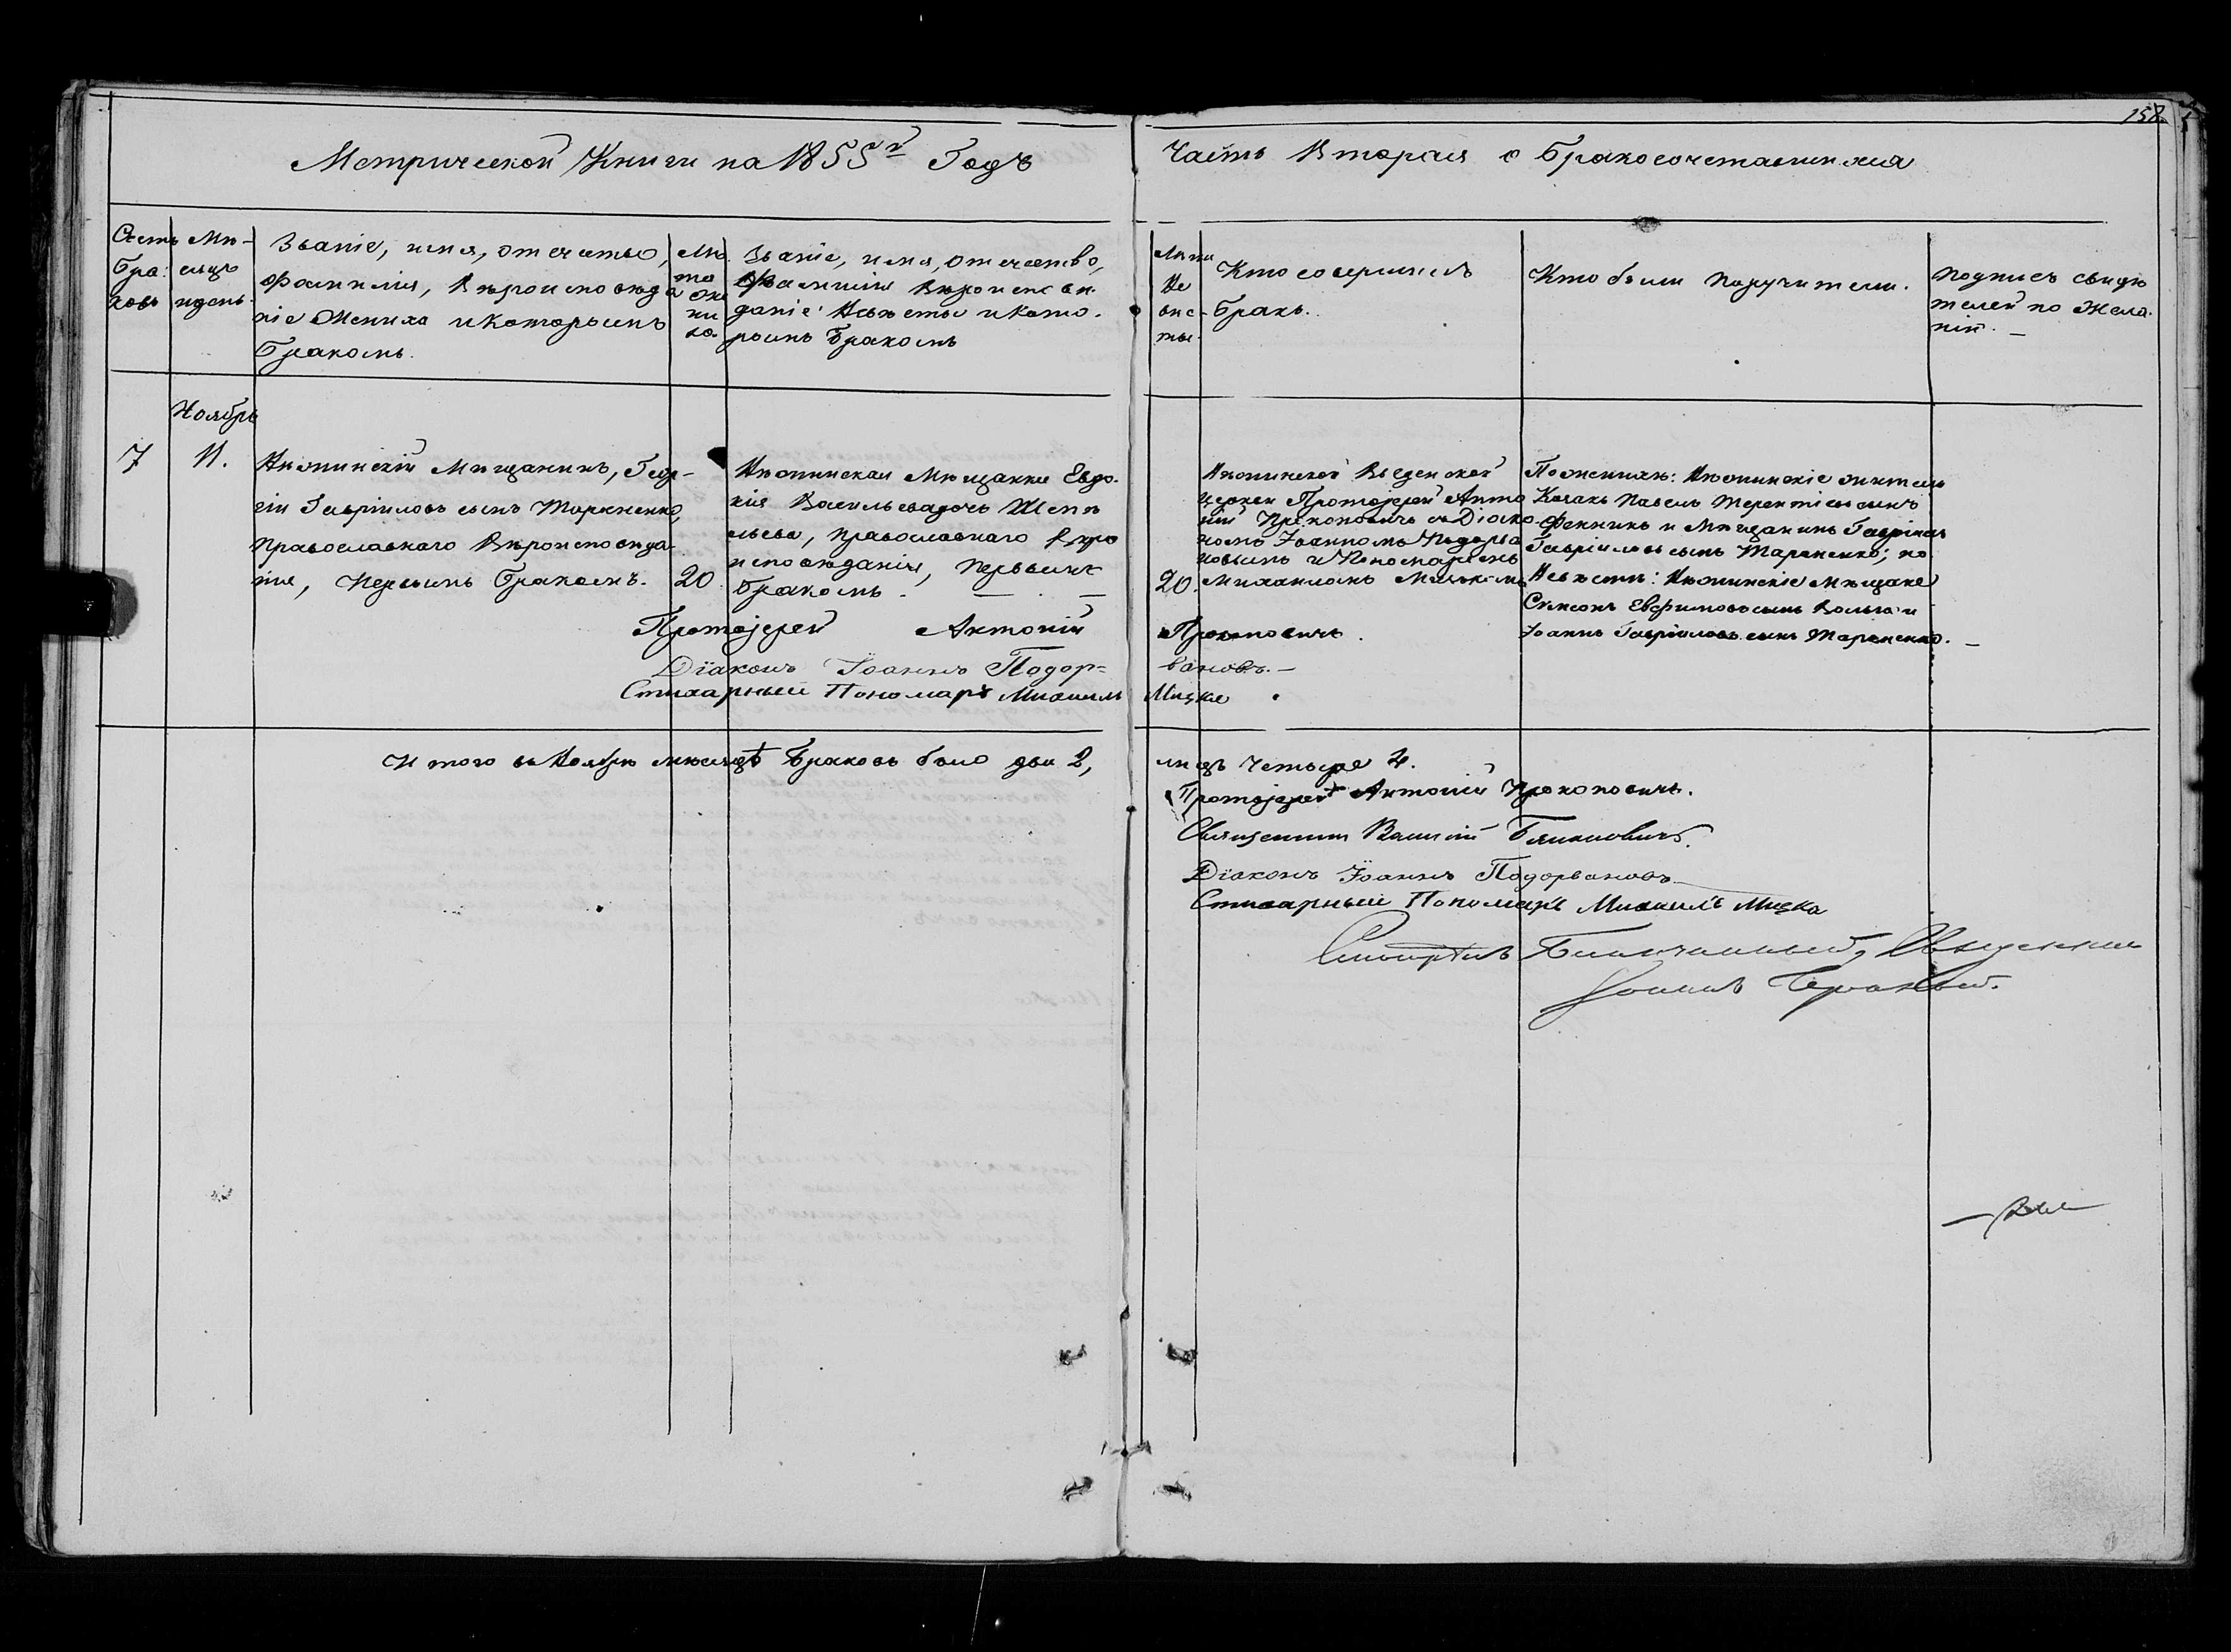 158.
Метрической Книги на 1855й Годъ
Часть Вторая о Бракосочетавшихся
Счетъ Бра: ковъ
Мѣ- сяцъ и день.
Званіе, имя, отечество,
фамилія, Вѣроисповѣда
ніе Жениха и которымъ
Бракомъ.
Лѣ та Же ни ха.
Званіе, имя, отечество,
фамилія Вѣроиспови-
даніе Невѣсты и кото-
рымъ Бракомъ
Лѣта Не вѣс- ты.
Кто совершилъ
Бракъ.
Кто были Поручители.
Подпись свидѣ
телей по Жела-
нію. —
Ноябрь
7
11.
Нѣжинскій Мѣщанинъ, Геор-
гій Гавріиловъ сынъ Тараненко,
Православнаго Вѣроисповѣда-
нія, Первымъ Бракомъ.
20
Нѣжинская Мѣщанка Евдо-
кія Васильева дочь
Православнаго Вѣро
исповѣданія, Первымъ
Бракомъ. —
20.
Нѣжинской Введенской
Церкви Протоіерей Анто
ній Прокоповичъ съ Діако-
номъ Іоанномъ Подорва
новымъ и Пономаремъ
Михаиломъ
По Женихѣ: Нѣжинскіе жители
Козакъ Павелъ Терентіевъ сынъ
и Мѣщанинъ Гавріилъ
Гавріиловъ сынъ Тараненко; по
Невѣстѣ: Нѣжинскіе Мѣщане
Симеонъ Евфимовъ сынъ и
Іоаннъ Гавріиловъ сынъ Тараненко. —
Протоіерей Антоній Прокоповичъ.
Діаконъ Іоаннъ Подор= вановъ. —
Стихарный Пономарь Михаилъ Мицка
И того въ Ноябрѣ мѣсяцѣ Браковъ было два 2, лицъ Четыре 4.
Протоіерей Антоній Прокоповичъ.
Священникъ Василій
Діаконъ Іоаннъ Подорвановъ
Стихарный Пономарь Михаилъ Мицка
Благочинный, Священникъ
Іоаннъ